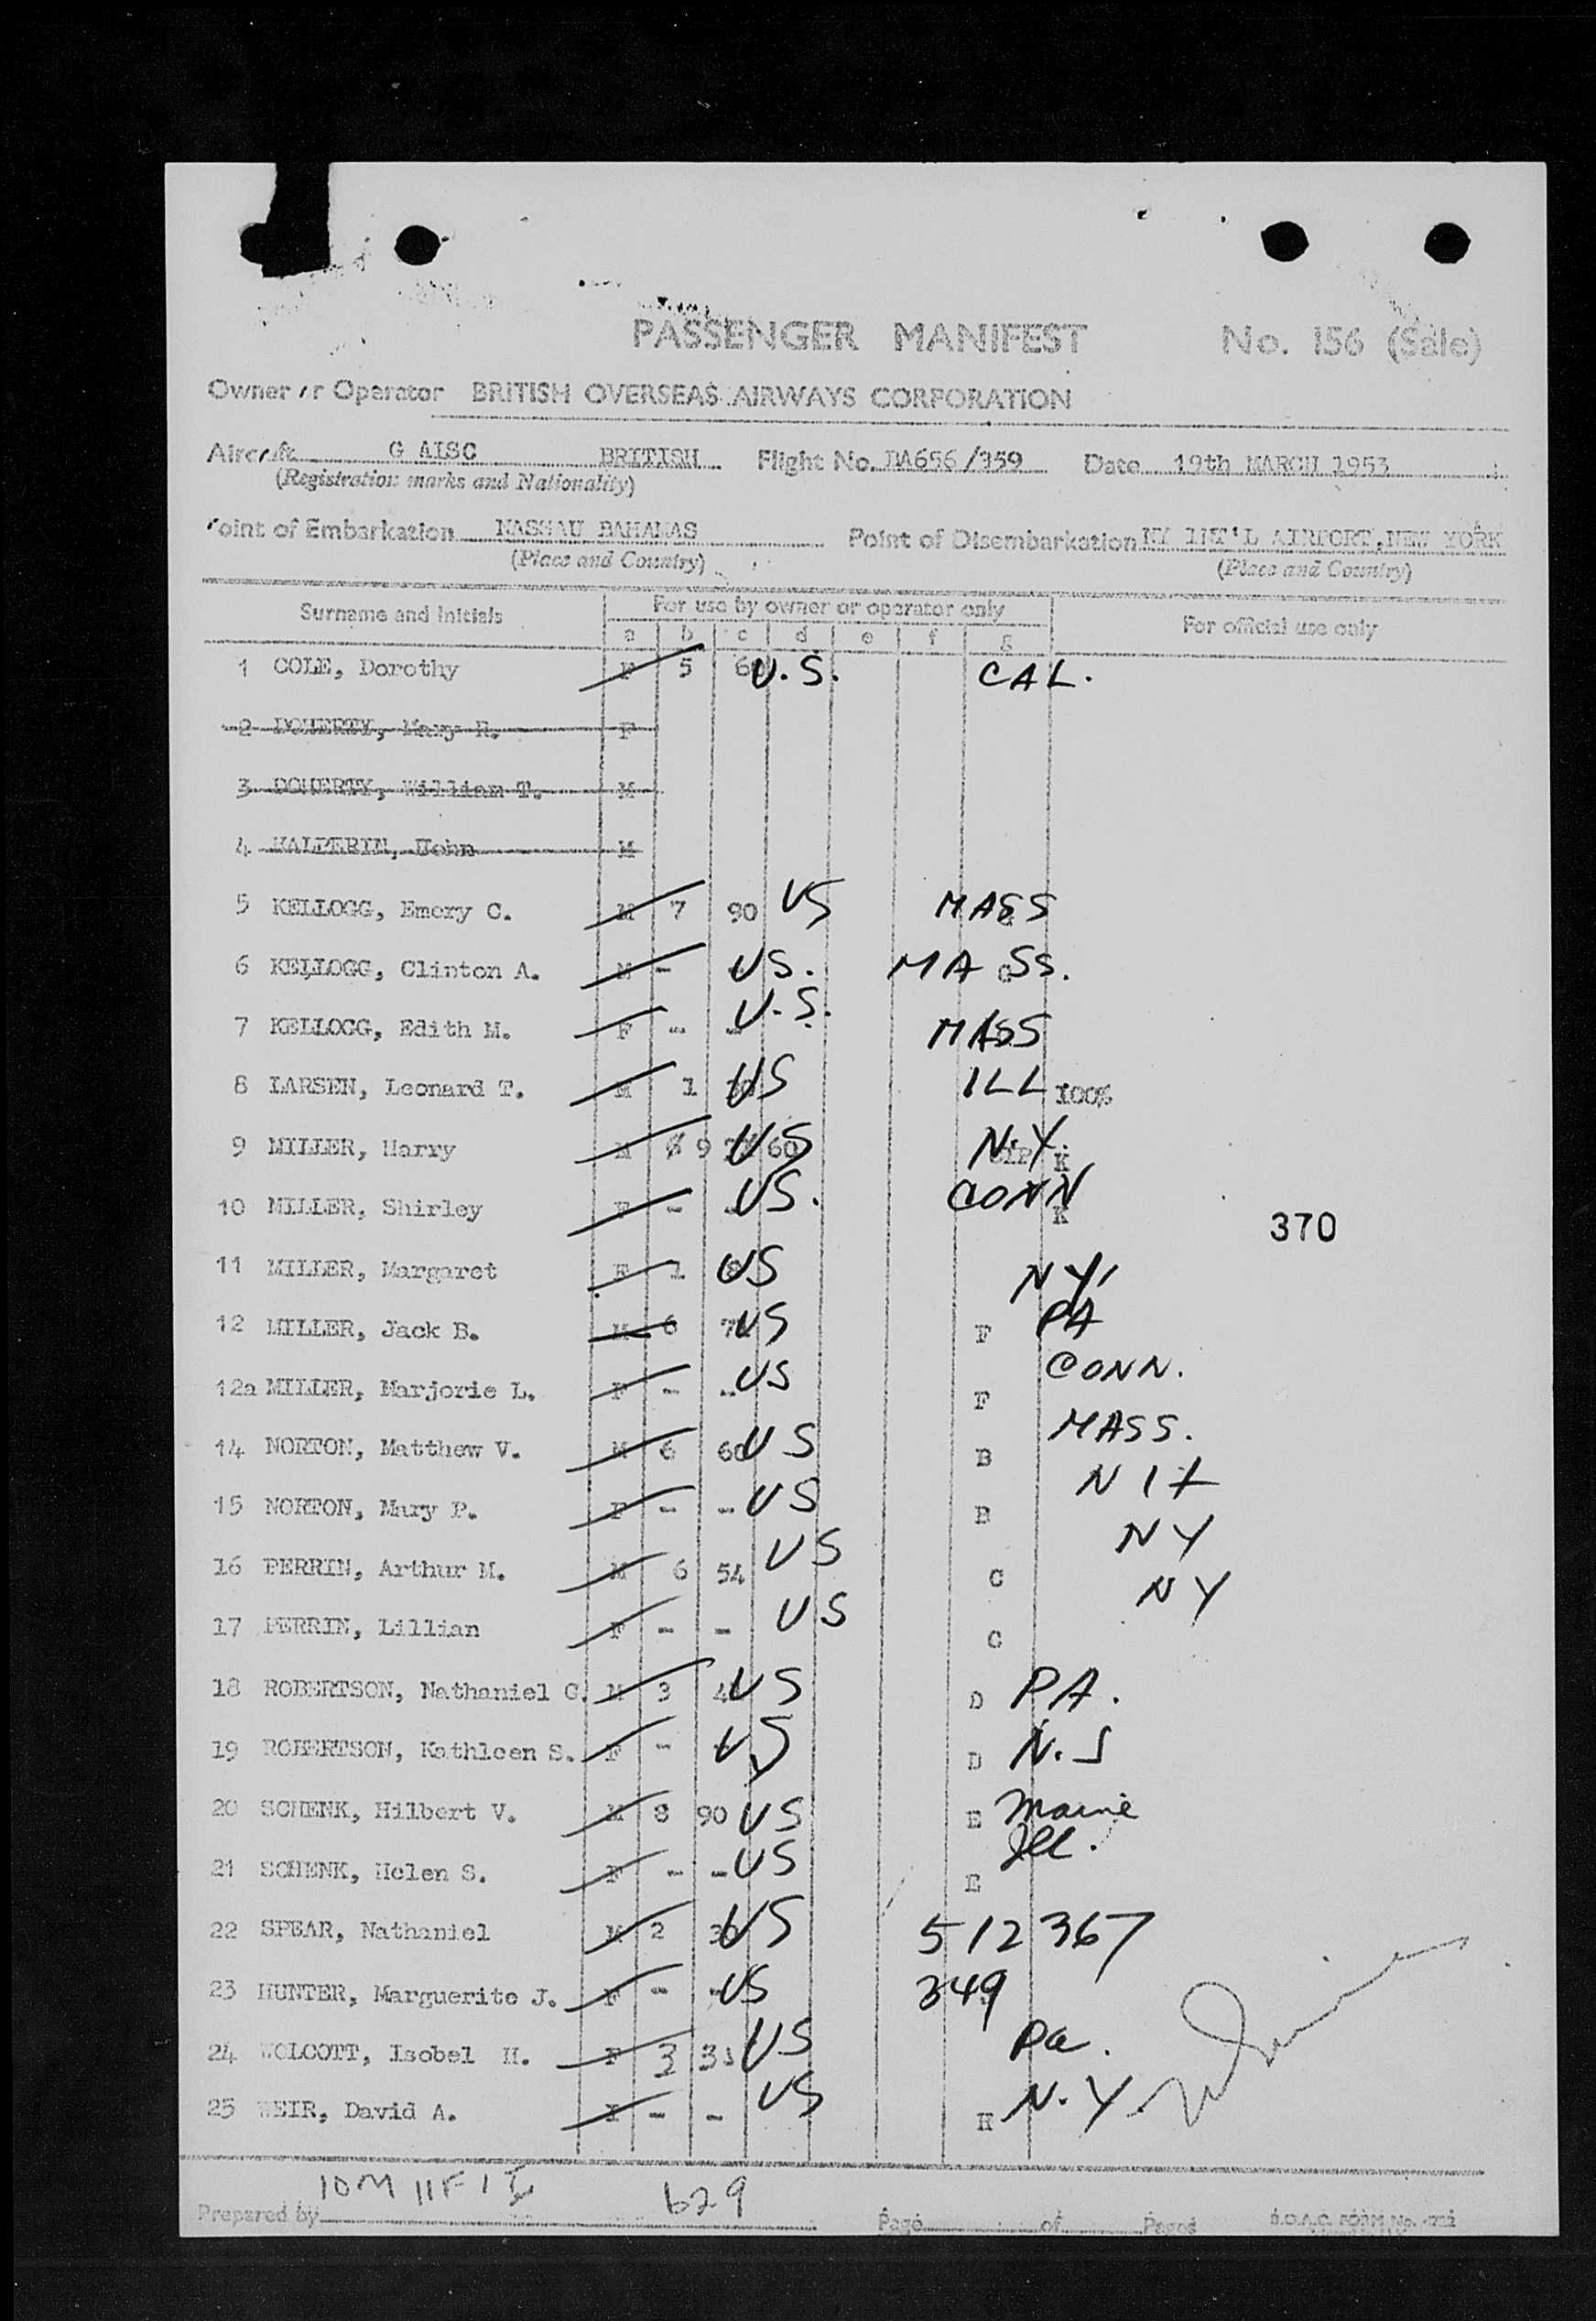 PASSENGER MANIFEST No. 156 (Sale)
Owner or Operator BRITISH OVERSEAS AIRWAYS CORPORATION
Aircraft G AISC BRITISH Flight No. BA656/359 Date 19th MARCH 1953
(Registration marks and Nationality)
Point of Embarkation NASSAU BAHAMAS Point of Disembarkation NY INT'L AIRPORT, NEW YORK
(Place and Country) (Place and Country)
Surname and initials For use by owner or operator only For official use only
a b c d e f g
1 COLE, Dorothy F 5 U.S. CAL.
2 DOHERTY, Mary R. F
3 DOHERTY, William T. M
4 HALPERIN, John M
5 KELLOGG, Emery C. M 7 90 US MASS
6 KELLOGG, Clinton A. M - US. MASS.
7 KELLOGG, Edith M. F - - U.S. MASS
8 LARSEN, Leonard T. M 1 US ILL 100%
9 MILLER, Harry M 9 US 60 N.Y. K
10 MILLER, Shirley F - - US. CONN K
370
11 MILLER, Margaret F 1 US NY
12 MILLER, Jack B. M 6 US F PA
12a MILLER, Marjorie L. F - - US F CONN.
14 NORTON, Matthew V. M 6 60 US B MASS.
15 NORTON, Mary P. F - - US B
16 PERRIN, Arthur M. M 6 54 US C NY
17 PERRIN, Lillian F - - US C NY
18 ROBERTSON, Nathaniel G. M 3 US D PA.
19 ROBERTSON, Kathleen S. F - US D N.J
20 SCHENK, Hilbert V. M 8 90 US E Maine
21 SCHENK, Helen S. F - - US E Ill.
22 SPEAR, Nathaniel M 2 US 512367
23 HUNTER, Marguerite J. F - - US 349
24 WOLCOTT, Isobel H. F 3 US Pa.
25 WEIR, David A. I - - US H N.Y.
10M 11F 1I 629
Prepared by Page of Pages B.O.A.C. FORM No.